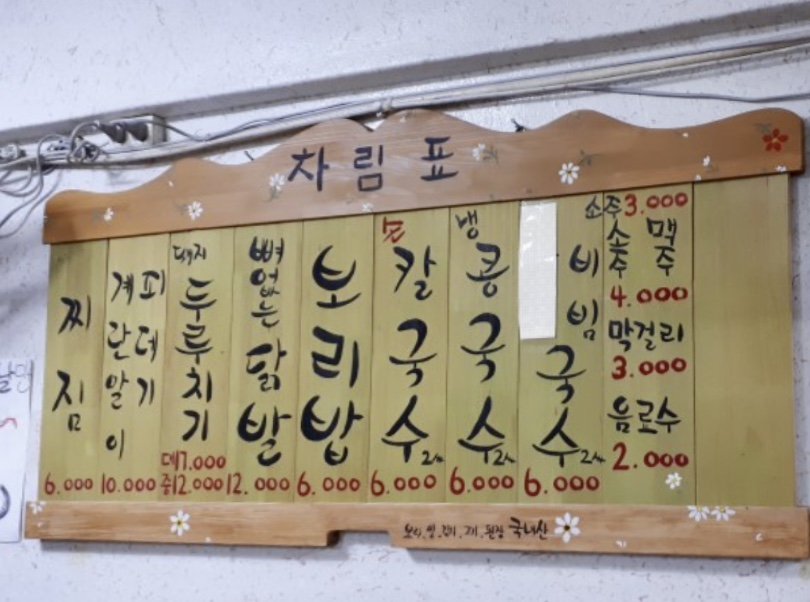 차림표
찌짐
6.000
계란말이
피데기
10.000
돼지
두루치기
대17.000
중12.000
뼈없는
닭발
12.000
보리밥
6.000
손
칼국수
6.000
냉
콩국수
6.000
비빔
국수
6.000
소주3.000
소주 맥주
4.000
막걸리
3.000
음료수
2.000
된장 국내산